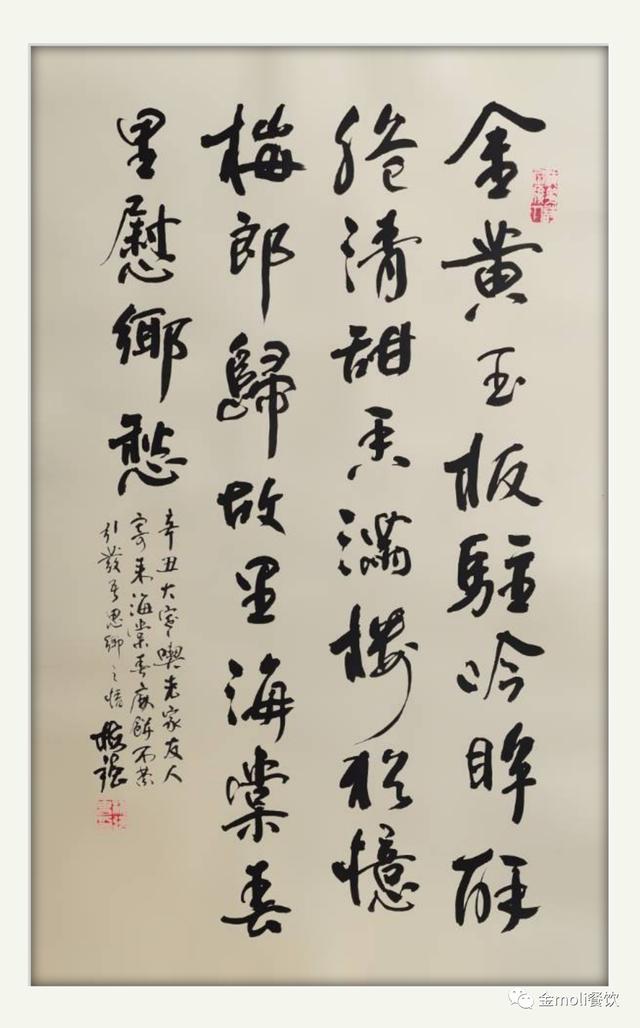 金黄玉板駐吟眸酥
脆清甜香滿樓猶憶
梅郎歸故里海棠春
里慰鄉愁
辛丑大寒喫老家友人
寄来海棠春麻餅不禁
引發吾思鄉之情
金moli餐饮